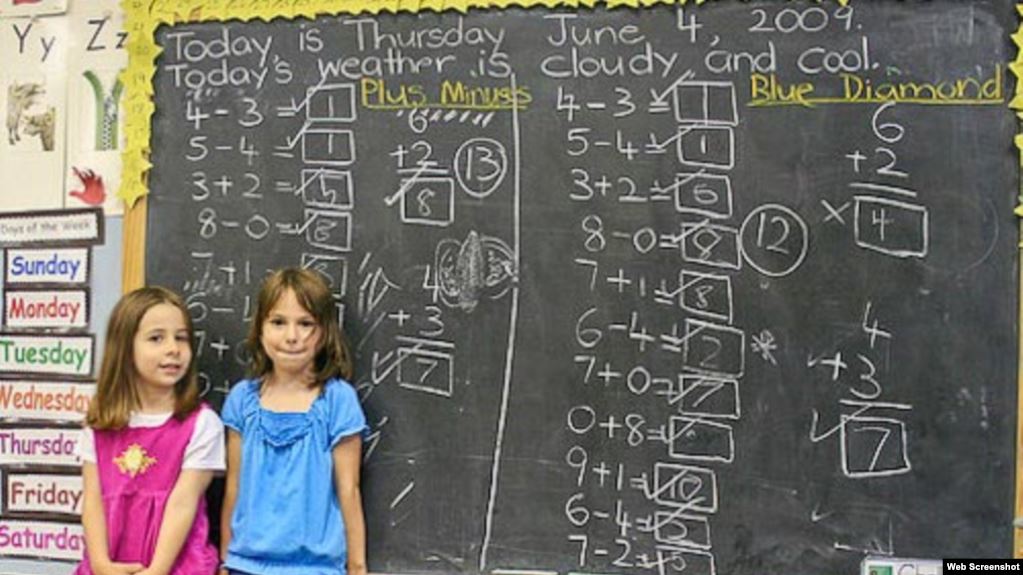 Yy Zz
Today is Thursday June 4, 2009.
Today's weather is cloudy and cool.
Days of the Week
Sunday
Monday
Tuesday
Wednesday
Thursda
Friday
Saturda
Plus Minuses
4-3= 1
5-4= 1
3+2= 5
8-0= 8
7+1
6-4
7+
6
+2
8
13
4
+3
7
Blue Diamond
4-3= 1
5-4= 1
3+2=
8-0= 8
7+1= 8
6-4= 2
7+0= 7
0+8=
9+1= 10
6-4= 2
7-2= 5
12
6
+2
4
4
+3
7
Web Screenshot